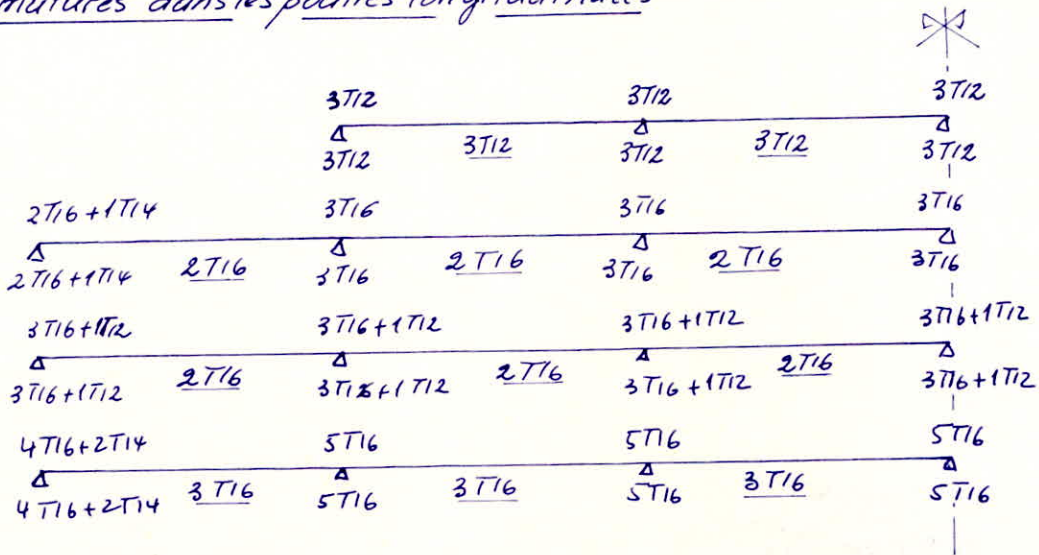 dans les poutres longitudinales
3T12 3T12 3T12
3T12 3T12
3T12 3T12 3T12
2T16+1T14 3T16 3T16 3T16
2T16 2T16 2T16
2T16+1T14 3T16 3T16 3T16
3T16+1T12 3T16+1T12 3T16+1T12 3T16+1T12
2T16 2T16 2T16
3T16+1T12 3T16+1T12 3T16+1T12 3T16+1T12
4T16+2T14 5T16 5T16 5T16
3T16 3T16 3T16
4T16+2T14 5T16 5T16 5T16